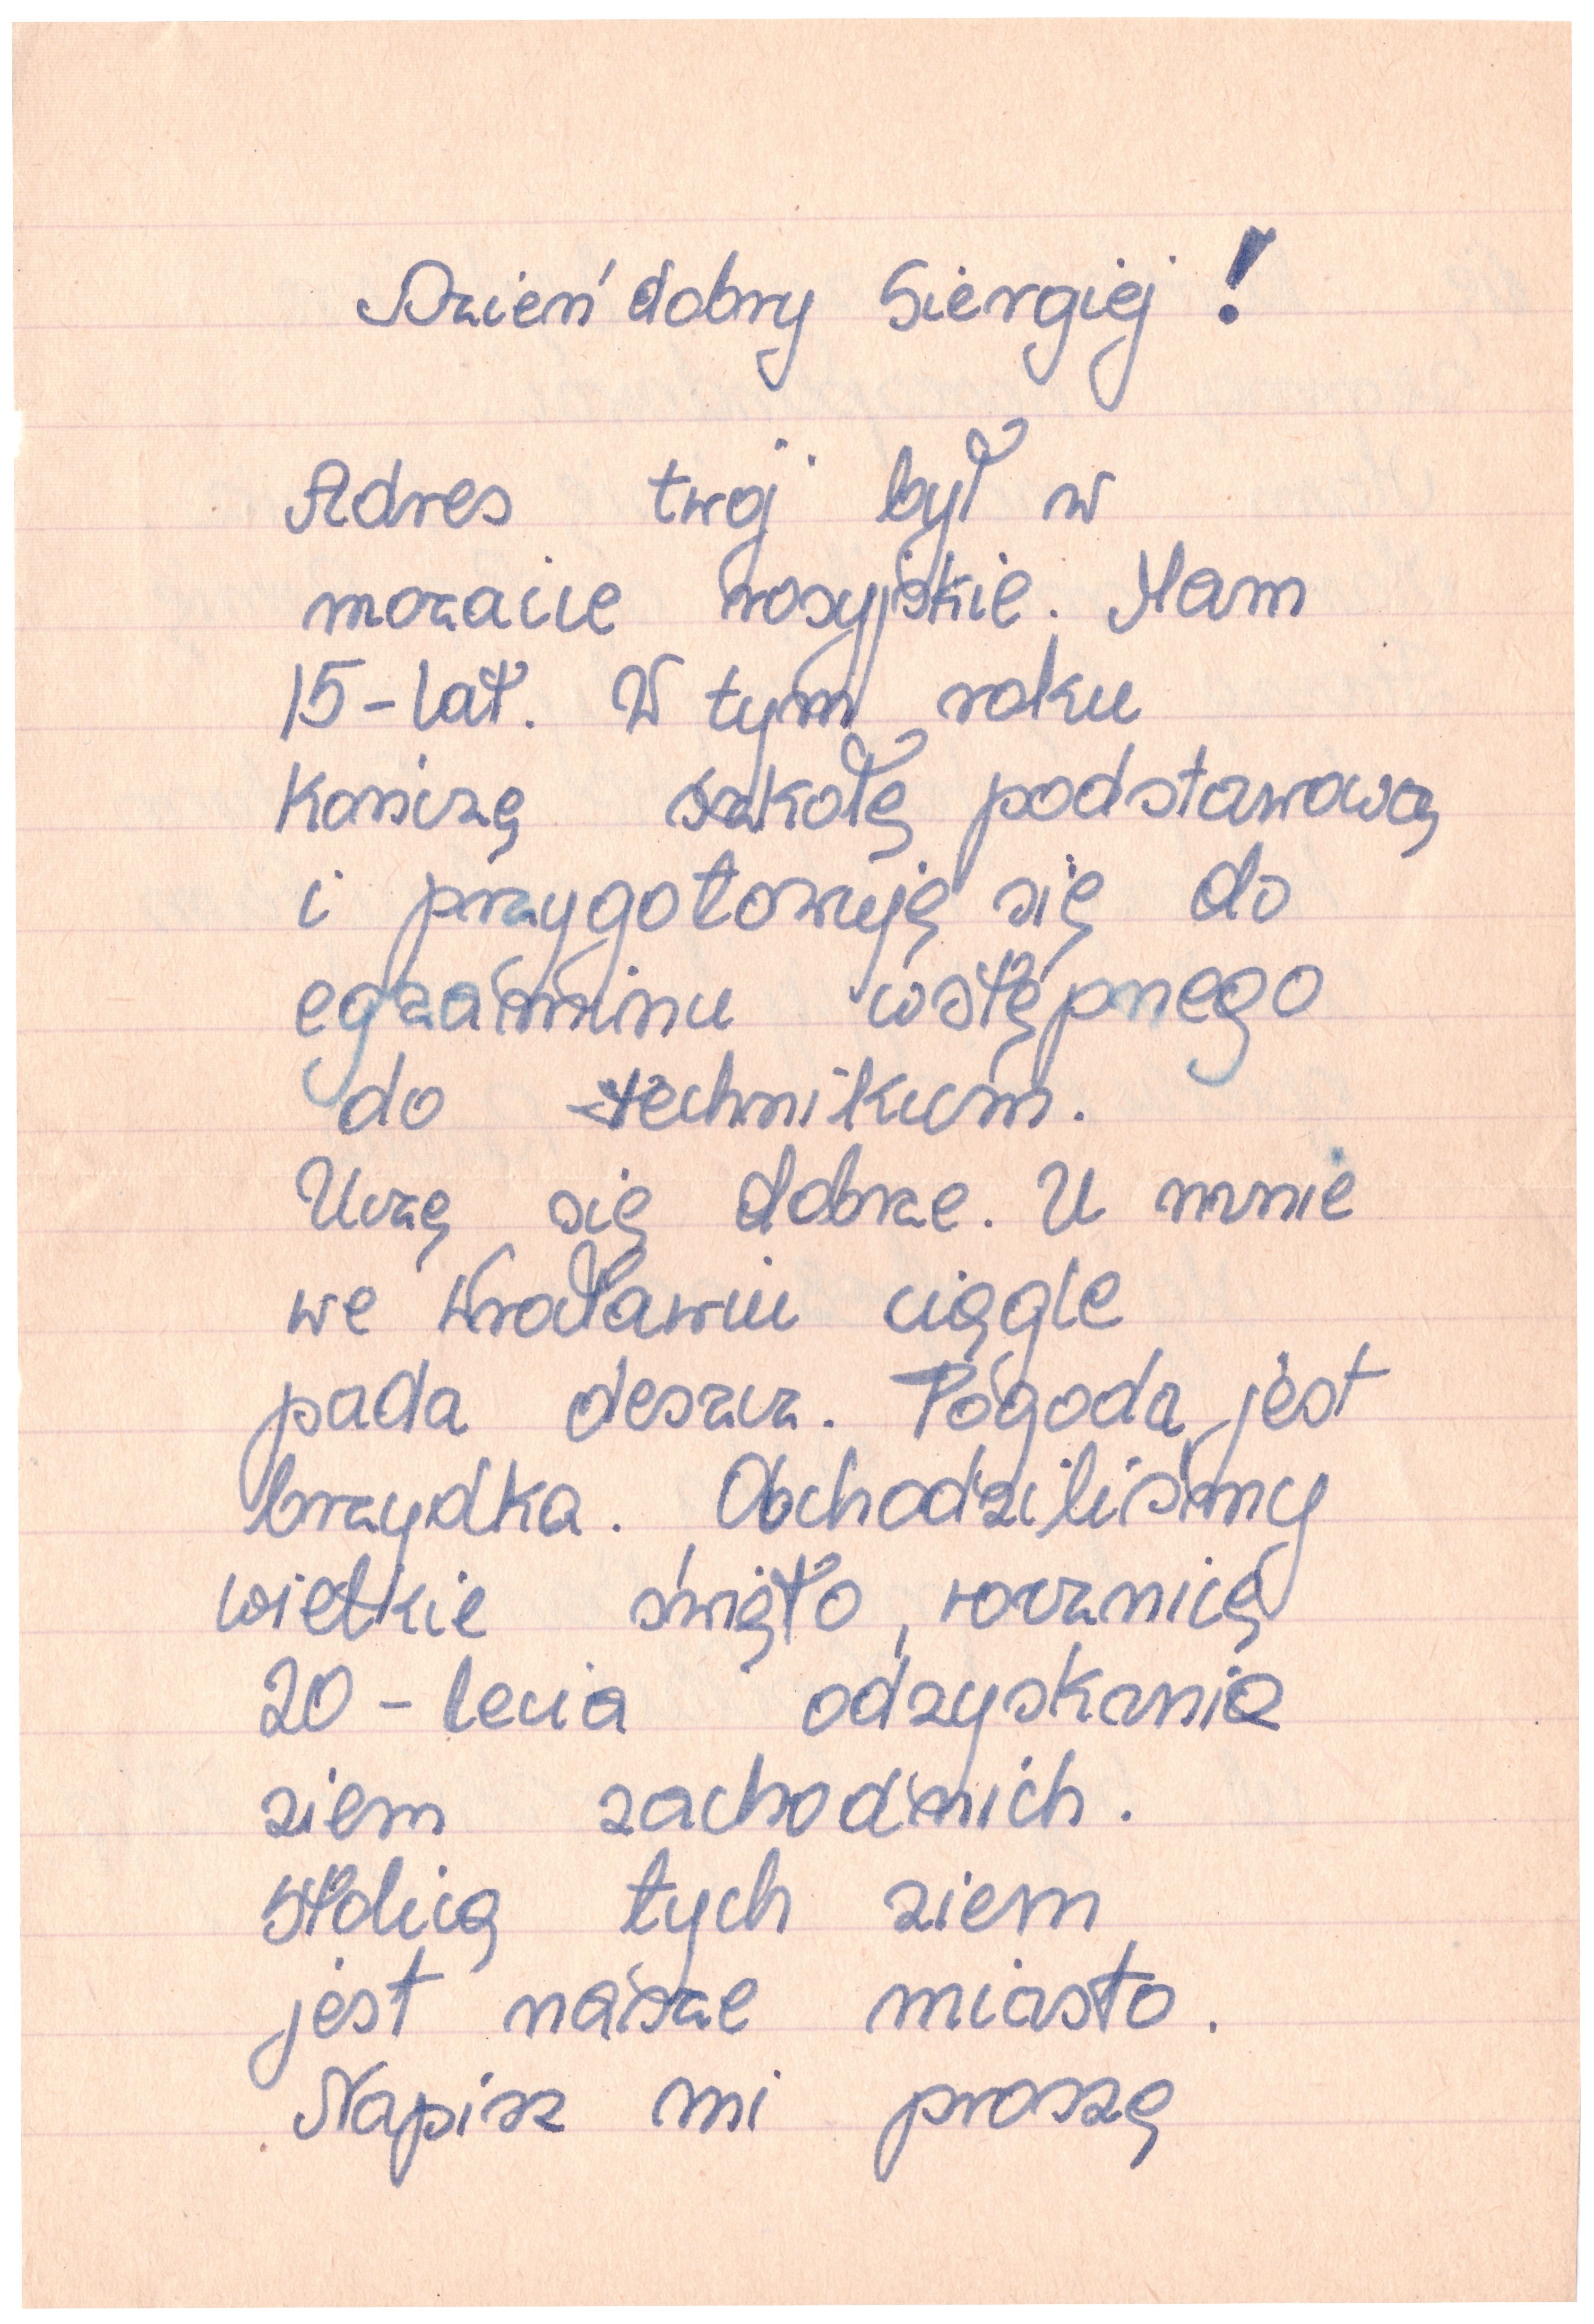 Dzień dobry Siergiej!
Adres twój był w
mozaice rosyjskie. Mam
15-lat. W tym roku
Kończę szkołę podstawową
i przygotowuję się do
egzaminu wstępnego
do technikum.
Uczę się dobrze. U mnie
we Wrocławiu ciągle
pada deszcz. Pogoda jest
brzydka. Obchodziliśmy
wielkie święto, rocznicę
20-lecia odzyskania
ziem zachodnich.
Stolicą tych ziem
jest nasze miasto.
Napisz mi proszę